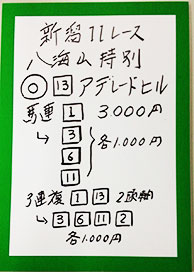 新潟11レース
八海山特別
◎ 13 アデレードヒル
馬連 1 3.000円
→ 3
6
11
各1.000円
3連複 1 13 2頭軸
→ 3 6 11 2
各1.000円